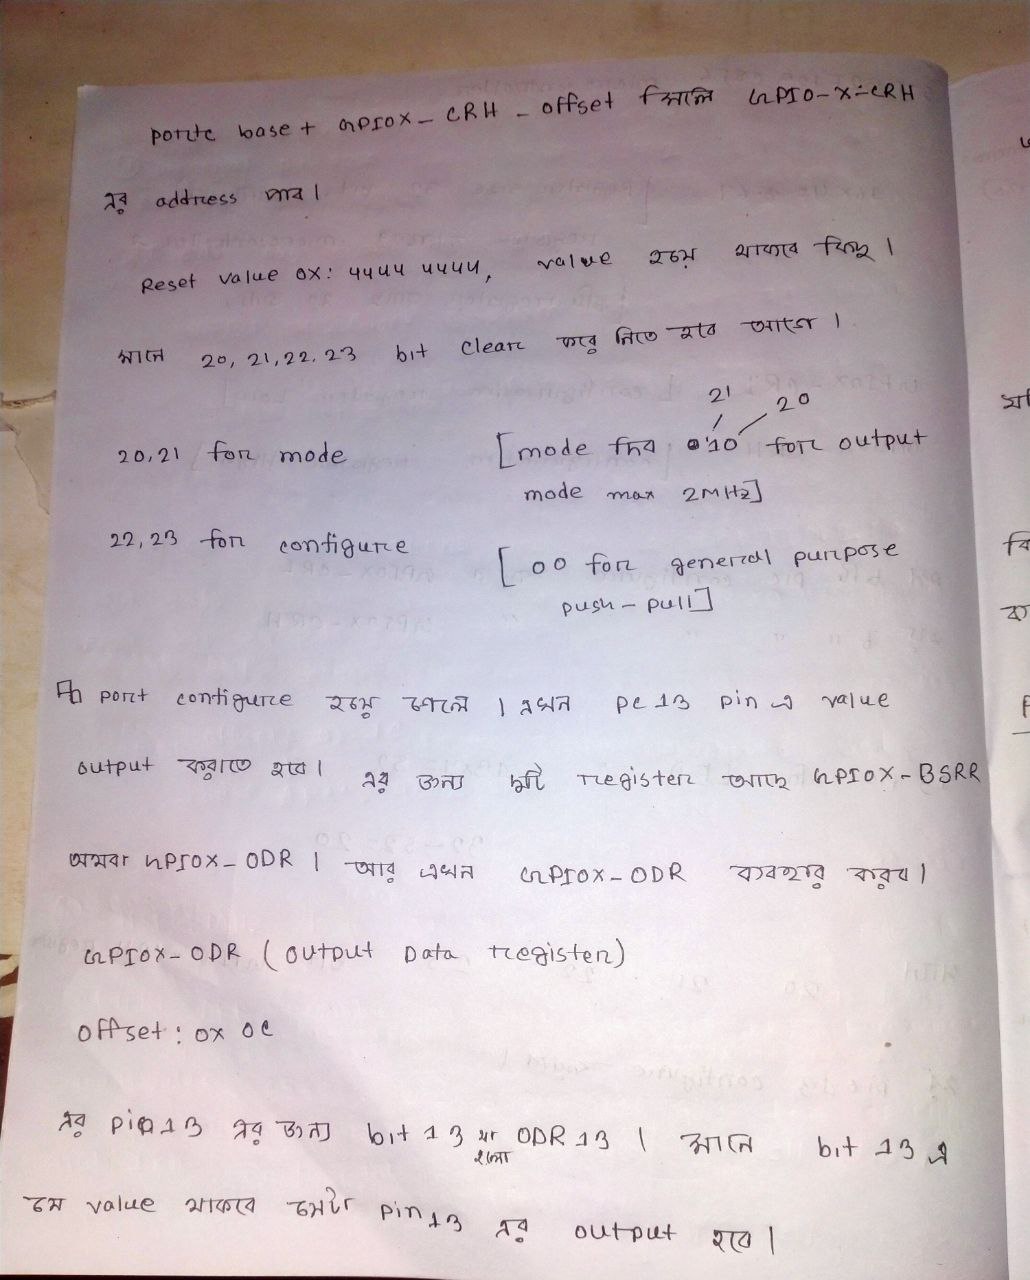 portc base + GPIOX - CRH - offset মিলে GPIO-X-CRH
এর address পাব।
Reset value 0x: 4444 4444, value হয়ে থাকবে কিছু।
মানে 20, 21, 22, 23 bit clear করে নিতে হবে আগে।
21 20
20,21 for mode [mode দিব 10 for output
mode max 2MHz]
22,23 for configure [00 for general purpose
push-pull]
port configure হয়ে গেলে। এখন pc 13 pin এ value
output করাতে হবে। এর জন্য দুটি register আছে GPIOX-BSRR
অথবা GPIOX-ODR। আর এখন GPIOX-ODR ব্যবহার করব।
GPIOX-ODR (output Data register)
offset: 0x 0C
এর pin 13 এর জন্য bit 13 যা হলো ODR 13। মানে bit 13 এ
যে value থাকবে সেটা pin 13 এর output হবে।